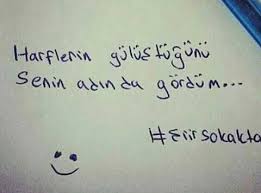 Harflerin gülüştüğünü
Senin adında gördüm...
#şiirsokakta